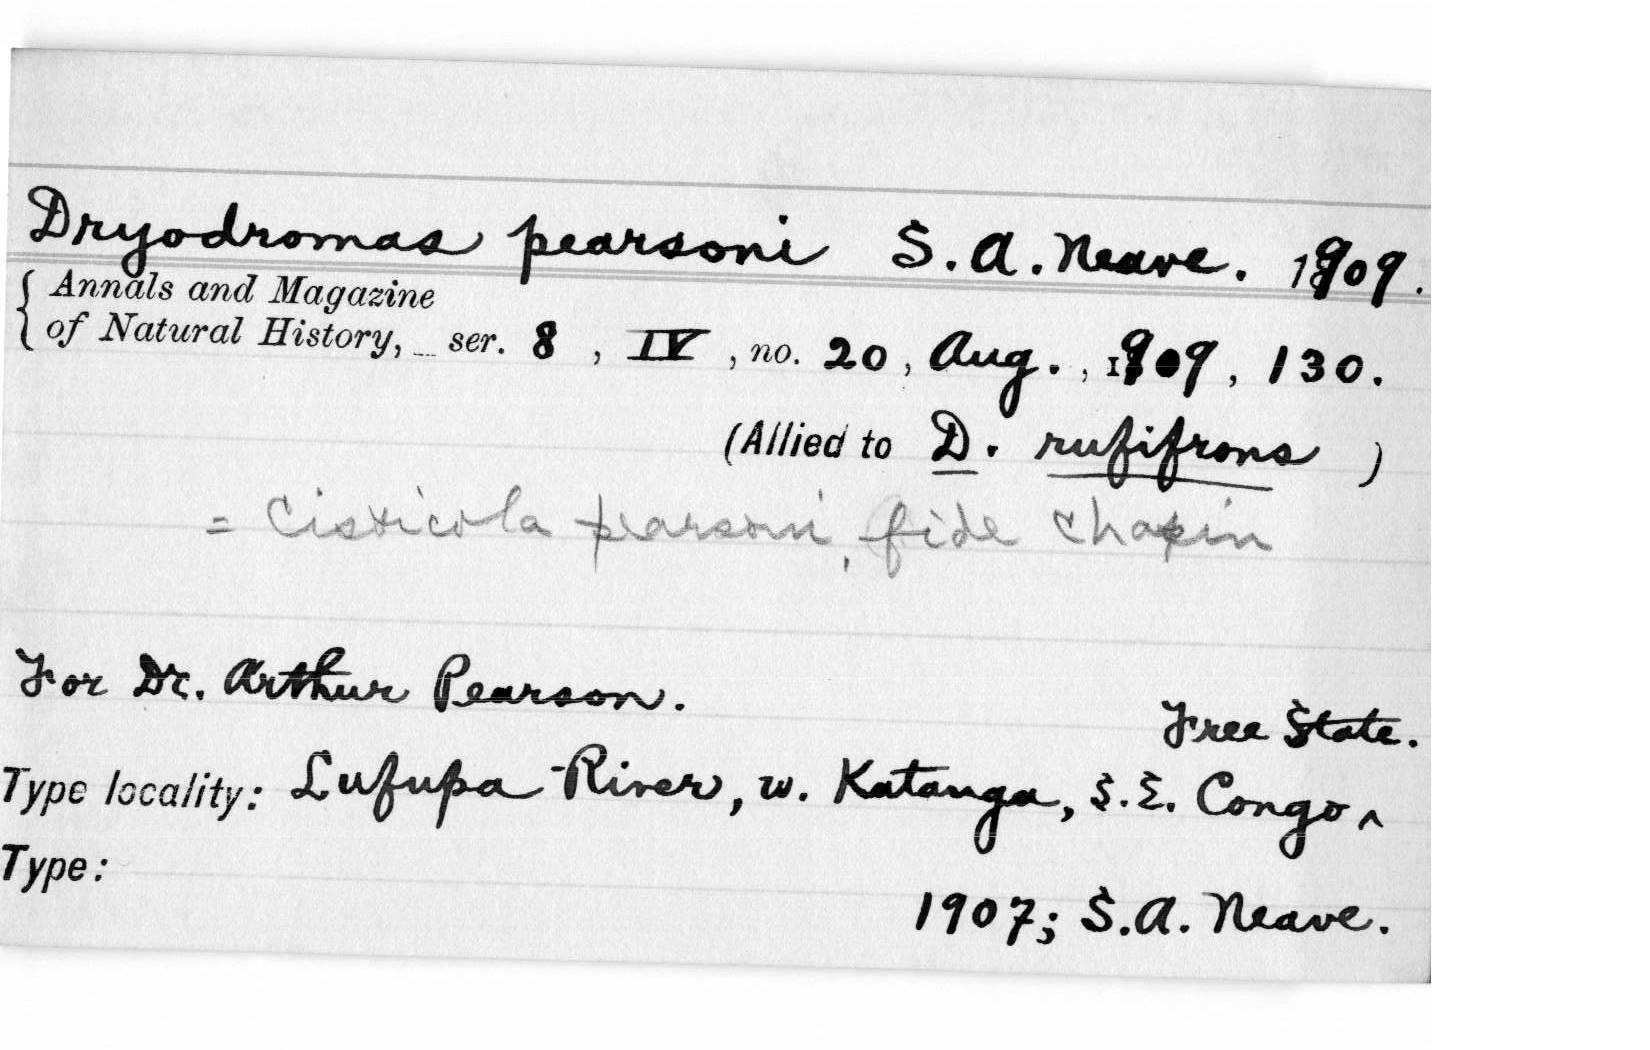 Dryodromas pearsoni S. A. Neave. 1909.
{ Annals and Magazine
of Natural History, ser. 8, IV, no. 20, Aug., 1909, 130.
(Allied to D. rufifrons )
= Cisticola pearsoni, fide Chapin
For Dr. Arthur Pearson.
Free State.
Type locality: Lufupa River, w. Katanga, S.E. Congo ^
Type:
1907; S.A. Neave.